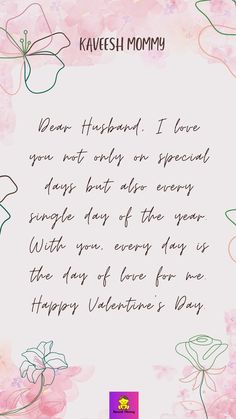 KAVEESH MOMMY
Dear Husband, I love
you not only on special
days but also every
single day of the year.
With you, every day is
the day of love for me.
Happy Valentine's Day